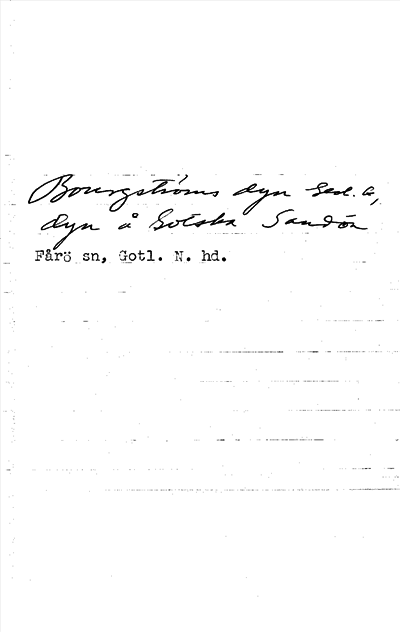 Bourgströms dyn Ged. b,
dyn å Gotska Sandön
Fårö sn, Gotl. N. hd.